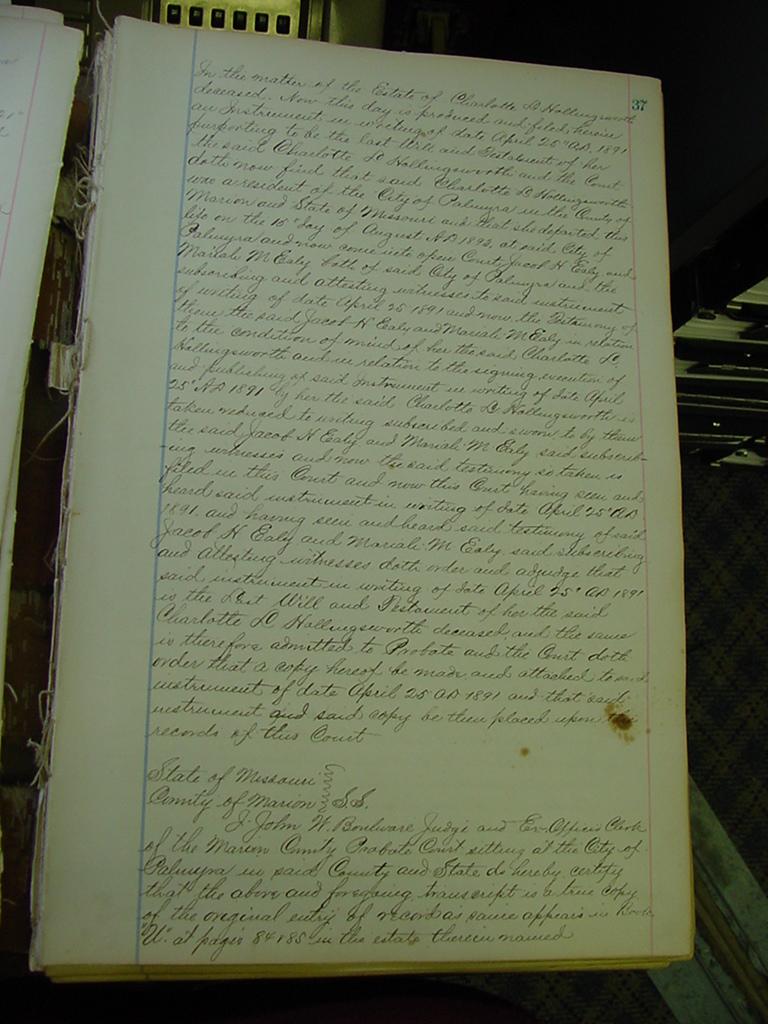 37
In the matter of the Estate of Charlotte L Hollingsworth
deceased. Now this day is produced and filed herein
an Instrument in writing of date April 25th A.D. 1891
purporting to be the last Will and Testament of her
the said Charlotte L Hollingsworth and the Court
doth now find that said Charlotte L Hollingsworth
was a resident of the City of Palmyra in the County of
Marion and State of Missouri and that she departed this
life on the 15" day of August A.D 1892, at said City of
Palmyra and now come into open Court Jacob H Ealy and
Mariah M Ealy both of said City of Palmyra and the
subscribing and attesting witnesses to said instrument
of writing of date April 25 1891 and now the Testimony of
them the said Jacob H Ealy and Mariah M Ealy in relation
to the condition of mind of her the said Charlotte L.
Hollingsworth and in relation to the signing execution of
and publishing of said Instrument in writing of date April
25" A.D 1891 by her the said Charlotte L Hollingsworth is
taken reduced to writing subscribed and sworn to by them
the said Jacob H Ealy and Mariah M Ealy said subscrib-
-ing witnesses and now the said testimony so taken is
filed in this Court and now this Court having seen and
heard said instrument in writing of date April 25" A.D
1891. and having seen and heard said testimony of said
Jacob H Ealy and Mariah M Ealy said subscribing
and attesting witnesses doth order and adjudge that
said instrument in writing of date April 25" A.D 1891
is the Last Will and Testament of her the said
Charlotte L Hollingsworth deceased and the same
is therefore admitted to Probate and the Court doth
order that a copy hereof be made and attached to said
instrument of date April 25 A.D 1891 and that said
instrument and said copy be then placed upon the
records of this Court
State of Missouri
County of Marion S.S.
I. John W. Boulware Judge and Ex-Officio Clerk
of the Marion County Probate Court sitting at the City of
Palmyra in said County and State do hereby certify
that the above and foregoing transcript is a true copy
of the original entry of record as same appears in Book
"U" at pages 84 & 85 in the estate therein named